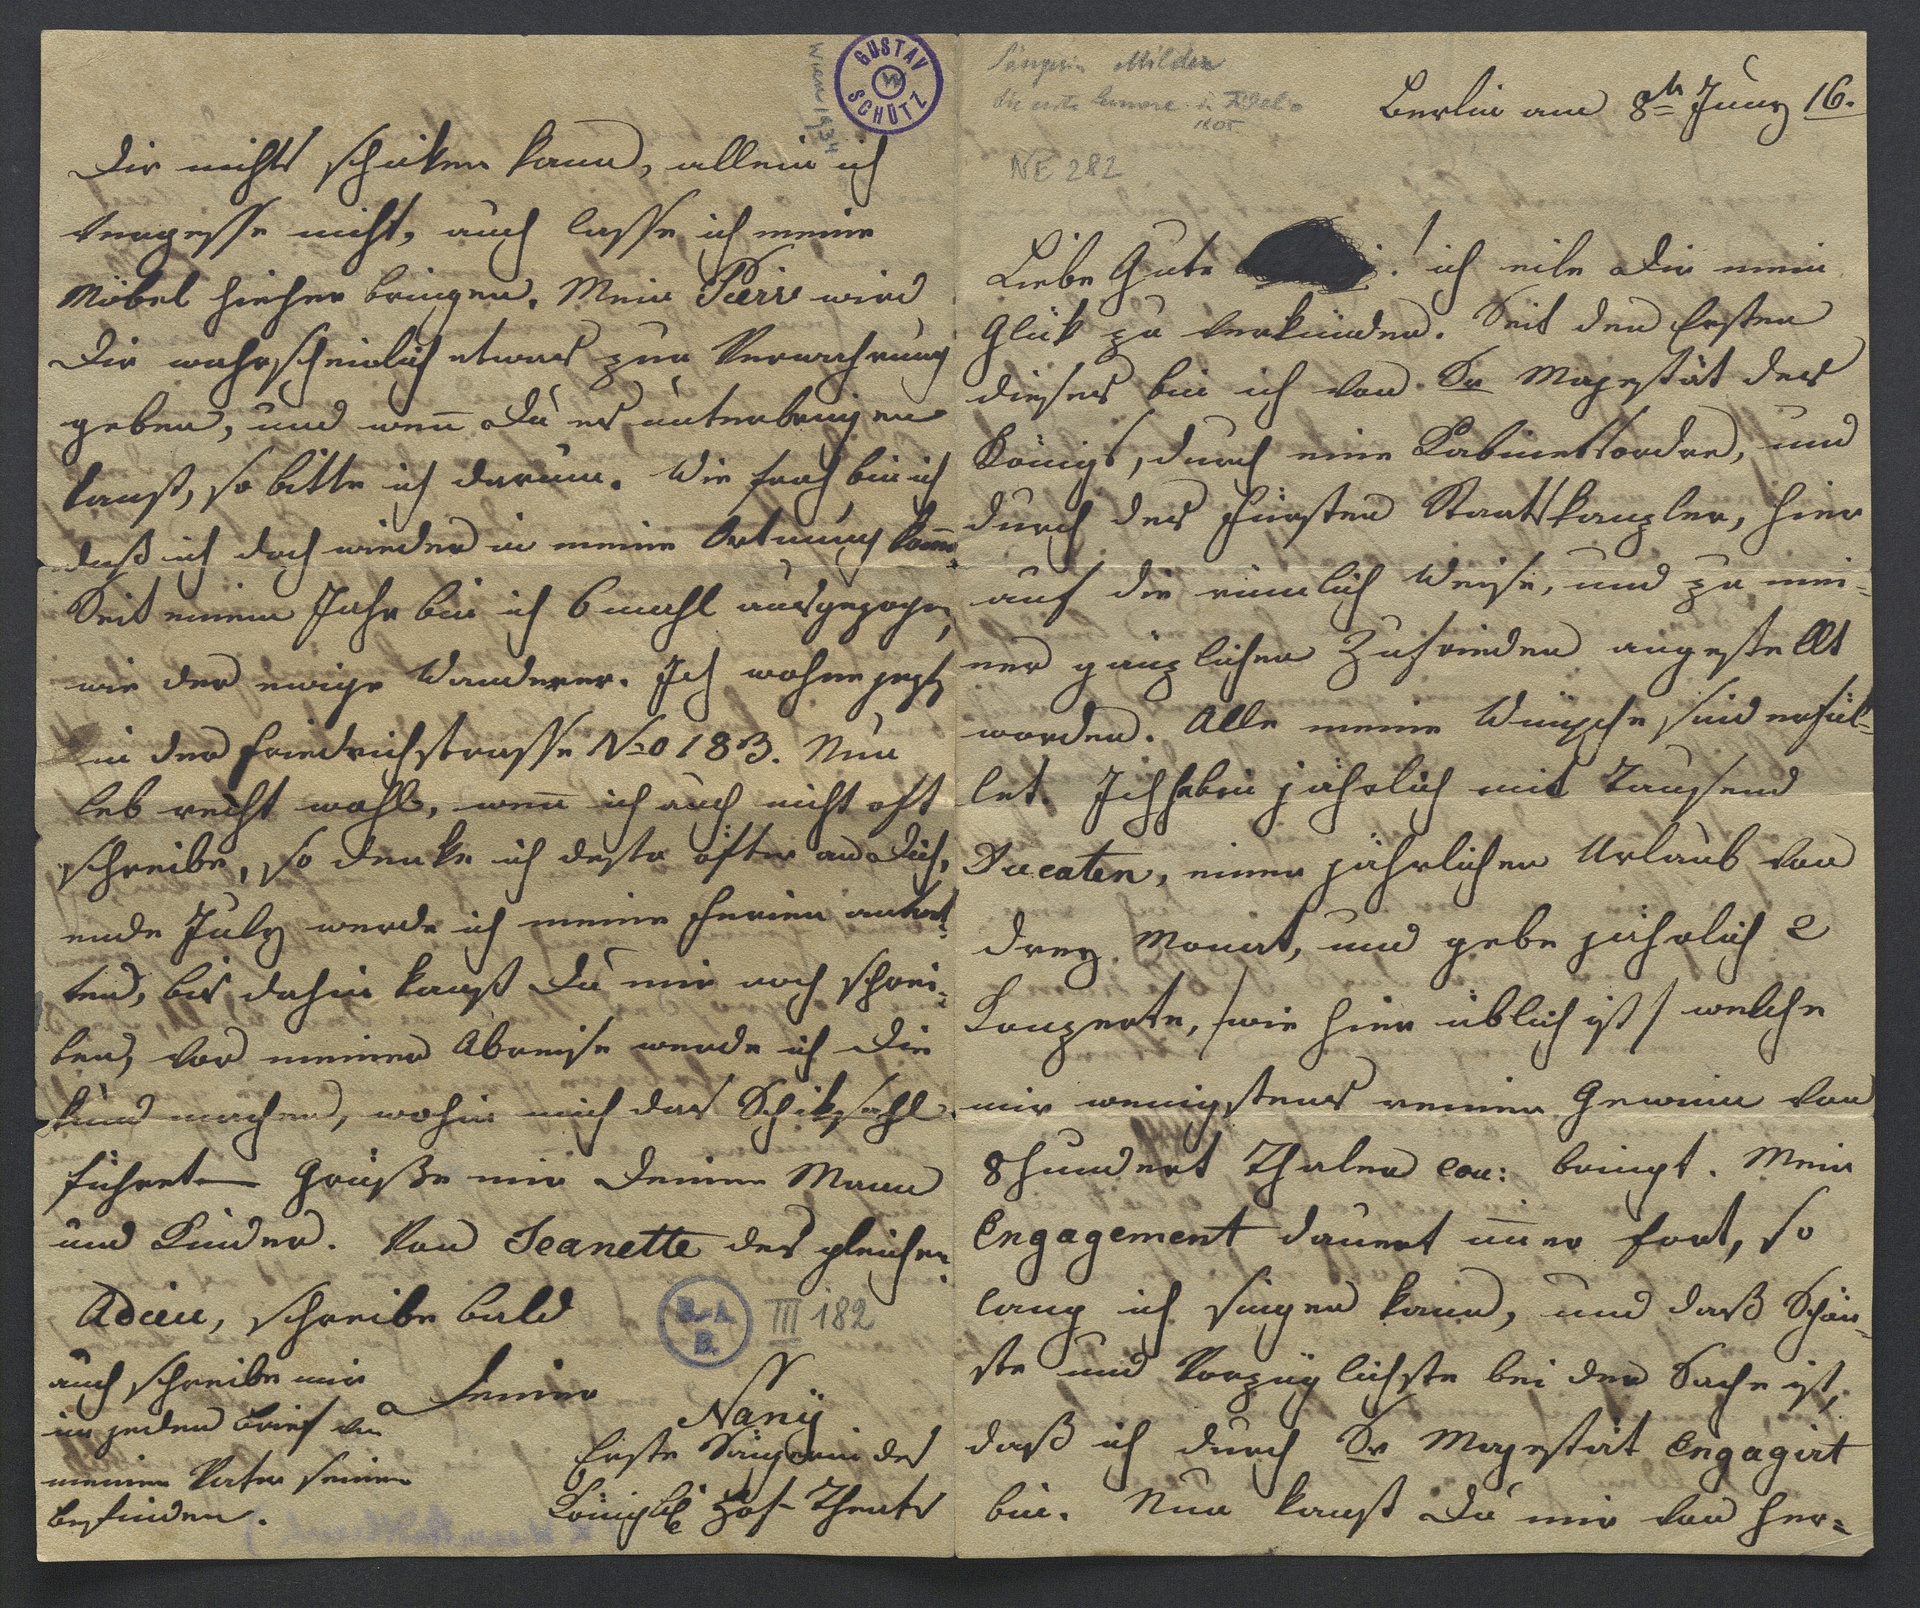 Sängerin Milder
die erste Leonore in Fidelio
1805
NE 282
Berlin am 8th Juny 16.
Liebe Gute ! ich eile Dir mein
Glük zu verkünden. Seit den Ersten
dieses bin ich von Sr Majestät des
Königs, durch eine Kabinettsordre, und
durch des Fürsten Staatskanzler, hier
auf die rümlich Weise, und zu mei-
ner gänzlichen Zufrieden angestellt
worden. Alle meine Wünsche sind erfül-
let. Ich habe jährlich mit Tausend
Ducaten, einen jährlichen Urlaub von
drey Monat, und gebe jährlich 2
Konzerte, /wie hier üblich ist/ welche
mir wenigstens reinen Gewinn von
8hundert Thaler cou: bringt. Mein
Engagement dauert im̅er fort, so
lang ich singen kann, und daß Schön-
ste und Vorzüglichste bei der Sache ist,
daß ich durch Sr Majestät Engagirt
bin. Nun kanst Du mir von her=
GUSTAV SCHÜTZ
Wien 1934
Dir nichts schiken kann, allein ich
vergesse nicht, auch lasse ich meine
Möbel hieher bringen. Mein Pierr wird
Dir wahrscheinlich etwas zur Verwahrung
geben, und wen̅ Du es unterbringen
kanst, so bitte ich darum. Wie froh bin ich
daß ich doch wieder in meine Ortnung kom̅e.
Seit einem Jahr bin ich 6mahl ausgezogen,
wie der ewige Wanderer. Ich wohne jezt
in der Friedrichstrasse No 183. Nun
leb recht wohl, wen̅ ich auch nicht oft
schreibe, so denke ich desto öfter an Dich,
ende July werde ich meine Ferien antret-
ten, bis dahin kanst Du mir noch schrei-
ben, vor meiner Abreise werde ich Dir
kund machen, wohin mich das Schiksahl
führet Grüße mir Deinen Mann
und Kinder. Von Jeanette des gleichen.
Adieu, schreibe bald
H.A.
B.
III 182
auch schreibe mir
in jeden Brief von
meinen Vater seinen
befinden.
Deiner
Nanÿ
Erste Sängerin des
Königlb Hof-Theater